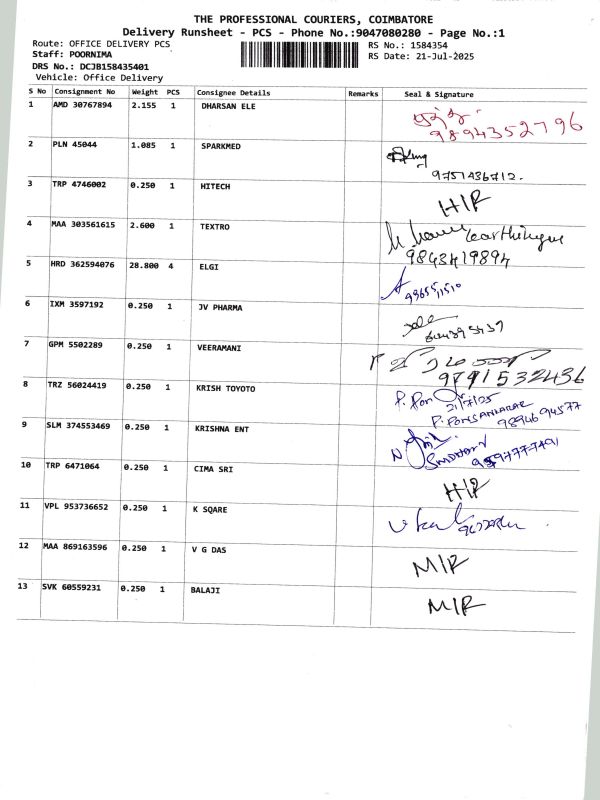 THE PROFESSIONAL COURIERS, COIMBATORE
Delivery Runsheet - PCS - Phone No.:9047080280 - Page No.:1
Route: OFFICE DELIVERY PCS
RS No.: 1584354
Staff: POORNIMA
RS Date: 21-Jul-2025
DRS No.: DCJB158435401
Vehicle: Office Delivery
S No Consignment No Weight PCS Consignee Details Remarks Seal & Signature
1 AMD 30767894 2.155 1 DHARSAN ELE
9894352796
2 PLN 45044 1.085 1 SPARKMED
9751436712.
3 TRP 4746002 0.250 1 HITECH
H/R
4 MAA 303561615 2.600 1 TEXTRO
9843419894
5 HRD 362594076 28.800 4 ELGI
6 IXM 3597192 0.250 1 JV PHARMA
7 GPM 5502289 0.250 1 VEERAMANI
9791532436
8 TRZ 56024419 0.250 1 KRISH TOYOTO
21/7/25
P. PONSANKARAR
9894694577
9 SLM 374553469 0.250 1 KRISHNA ENT
10 TRP 6471064 0.250 1 CIMA SRI
H/R
11 VPL 953736652 0.250 1 K SQARE
12 MAA 869163596 0.250 1 V G DAS
M/R
13 SVK 60559231 0.250 1 BALAJI
M/R